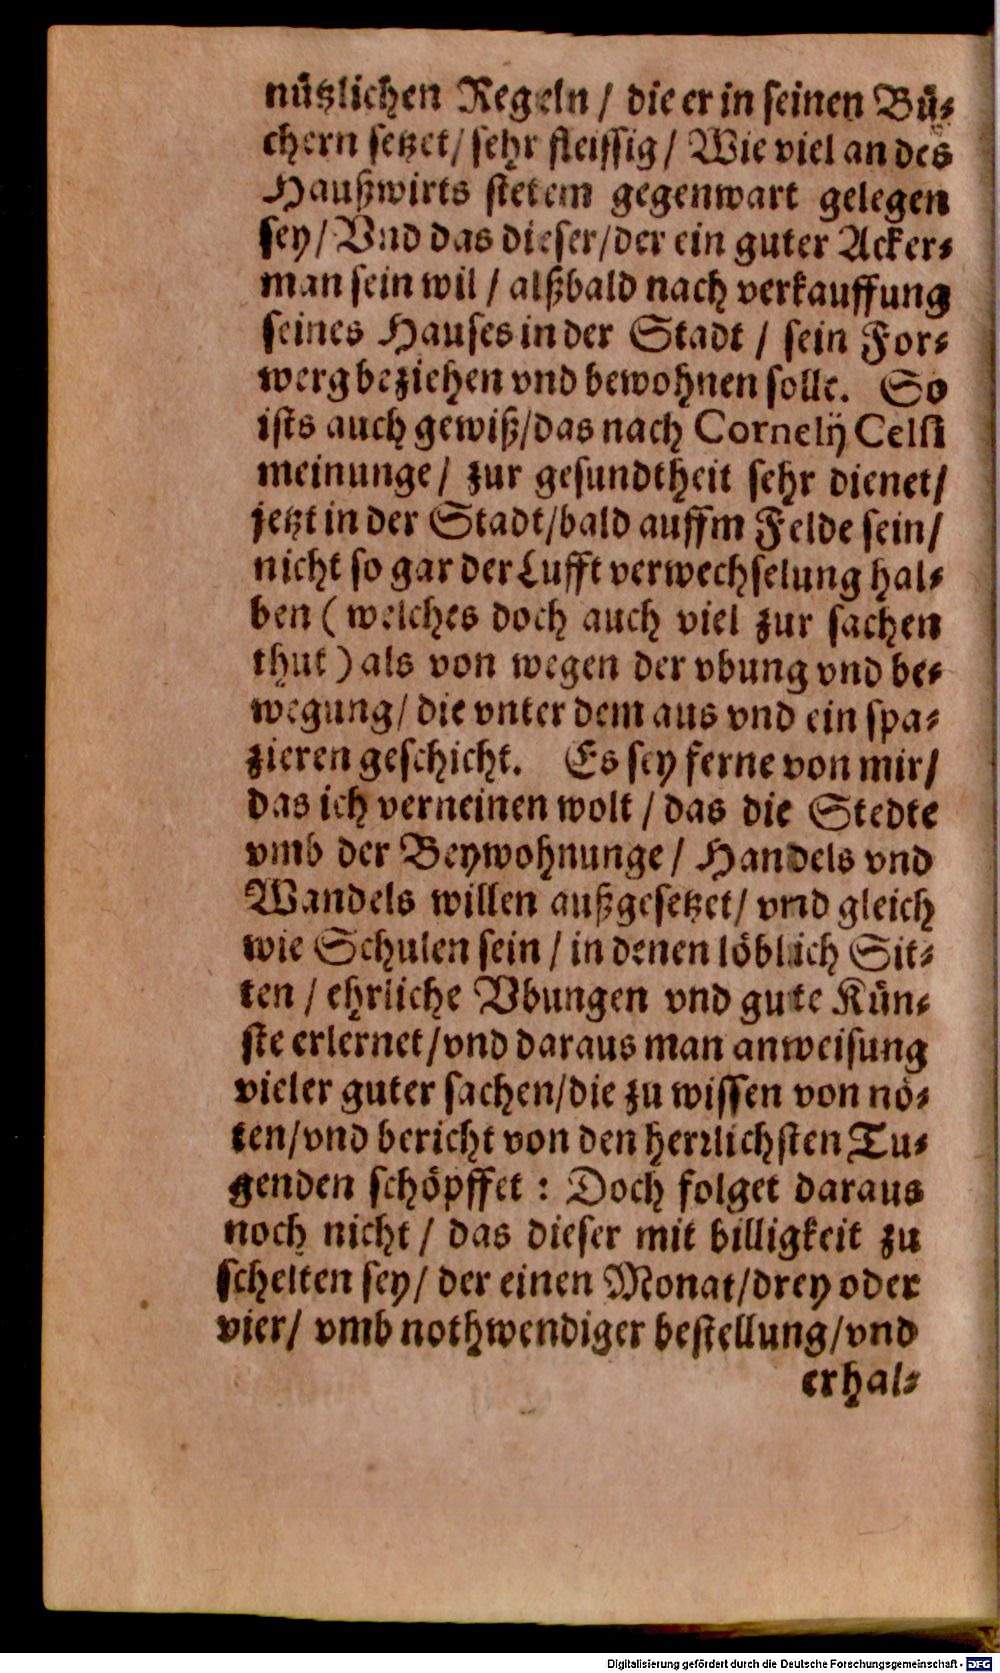 nützlichen Regeln / die er in seinen Bü-
chern setzet / sehr fleissig / Wie viel an des
Haußwirts stetem gegenwart gelegen
sey / Vnd das dieser / der ein guter Acker-
man sein wil / alßbald nach verkauffung
seines Hauses in der Stadt / sein For-
werg beziehen vnd bewohnen solle. So
ists auch gewiß / das nach Cornelij Celsi
meinunge / zur gesundtheit sehr dienet /
jetzt in der Stadt / bald auffm Felde sein /
nicht so gar der Lufft verwechselung hal-
ben ( welches doch auch viel zur sachen
thut ) als von wegen der vbung vnd be-
wegung / die vnter dem aus vnd ein spa-
zieren geschicht. Es sey ferne von mir /
das ich verneinen wolt / das die Stedte
vmb der Beywohnunge / Handels vnd
Wandels willen außgesetzet / vnd gleich
wie Schulen sein / in denen löblich Sit-
ten / ehrliche Vbungen vnd gute Kün-
ste erlernet / vnd daraus man anweisung
vieler guter sachen / die zu wissen von nö-
ten / vnd bericht von den herrlichsten Tu-
genden schöpffet : Doch folget daraus
noch nicht / das dieser mit billigkeit zu
schelten sey / der einen Monat / drey oder
vier / vmb nothwendiger bestellung / vnd
erhal-
Digitalisierung gefördert durch die Deutsche Forschungsgemeinschaft - DFG